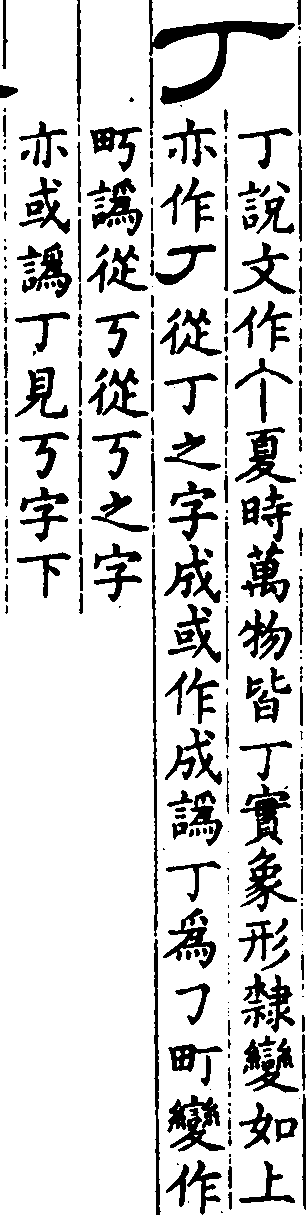 丁
丁說文作个夏時萬物皆丁實象形隸變如上
亦作丁從丁之字成或作成譌丁爲㇆町變作
𤰕譌從丂從丂之字
亦或譌丁見丂字下